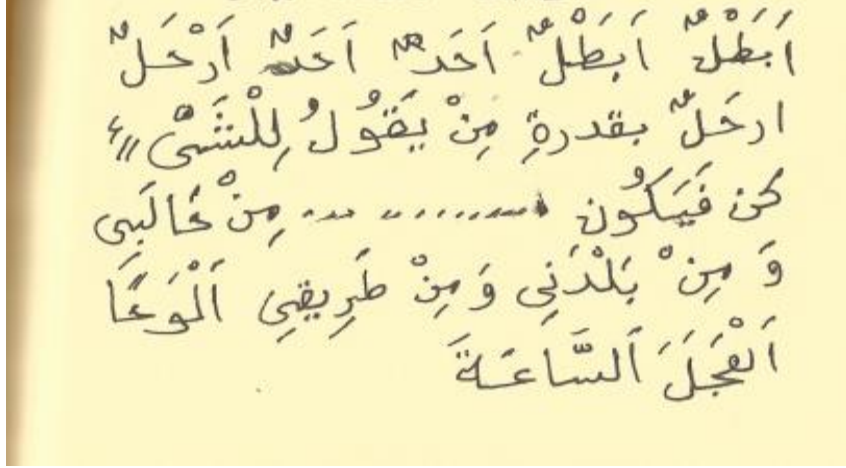 اَبَطْلٌ اَبَطْلٌ اَحَدٌ اَحَدٌ اَرْحَلٌ
ارحَلٌ بقدرةِ مِنْ يَقُولُ لِلْشَىْءِ
كن فَيَكُون ............ مِنْ غَالَبِى
وَ مِنْ بَلْدَنِى وَ مِنْ طَرِيقِى اَلْوَحَا
اَلْعَجَلَ اَلسَّاعَةَ